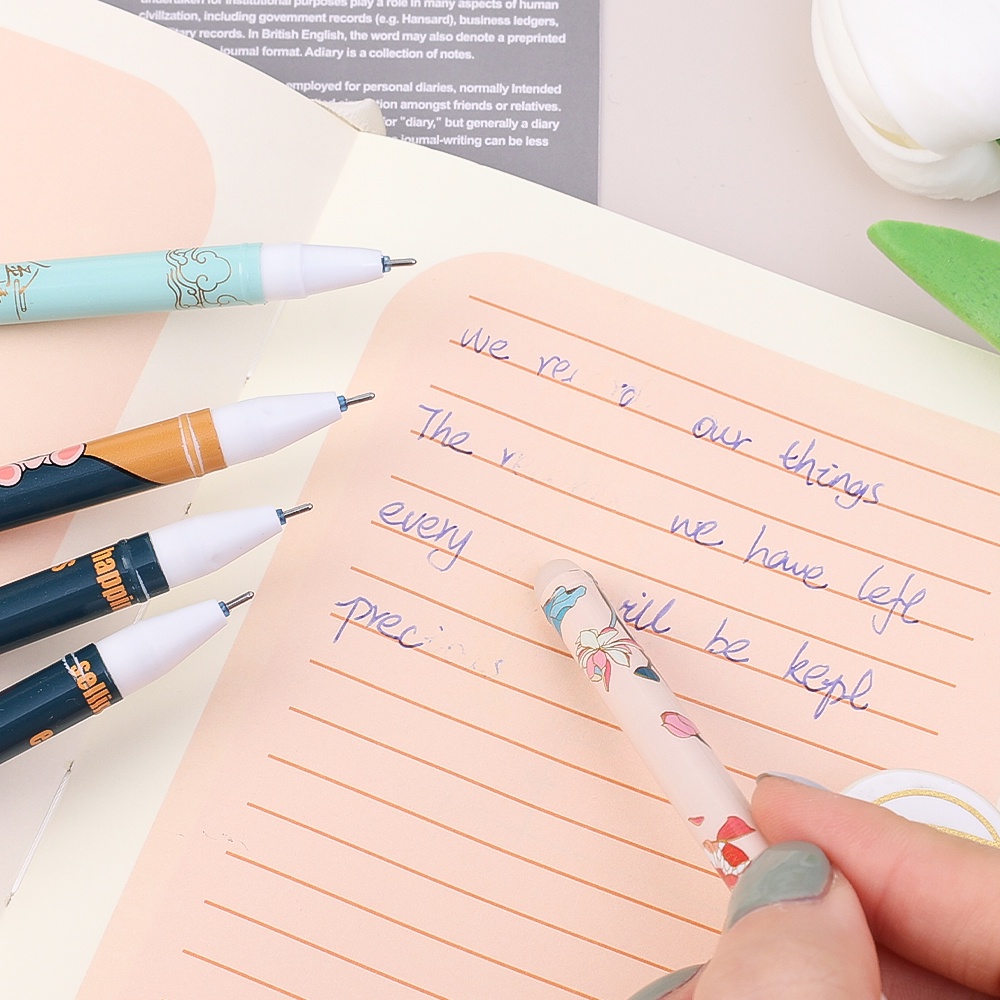 undertaken for institutional purposes play a role in many aspects of human
civilization, including government records (e.g. Hansard), business ledgers,
records. In British English, the word may also denote a preprinted
journal format. Adiary is a collection of notes.
employed for personal diaries, normally Intended
amongst friends or relatives.
for "diary," but generally a diary
journal-writing can be less
we our things
The we have left
every will be kept
prec
happin
sellin